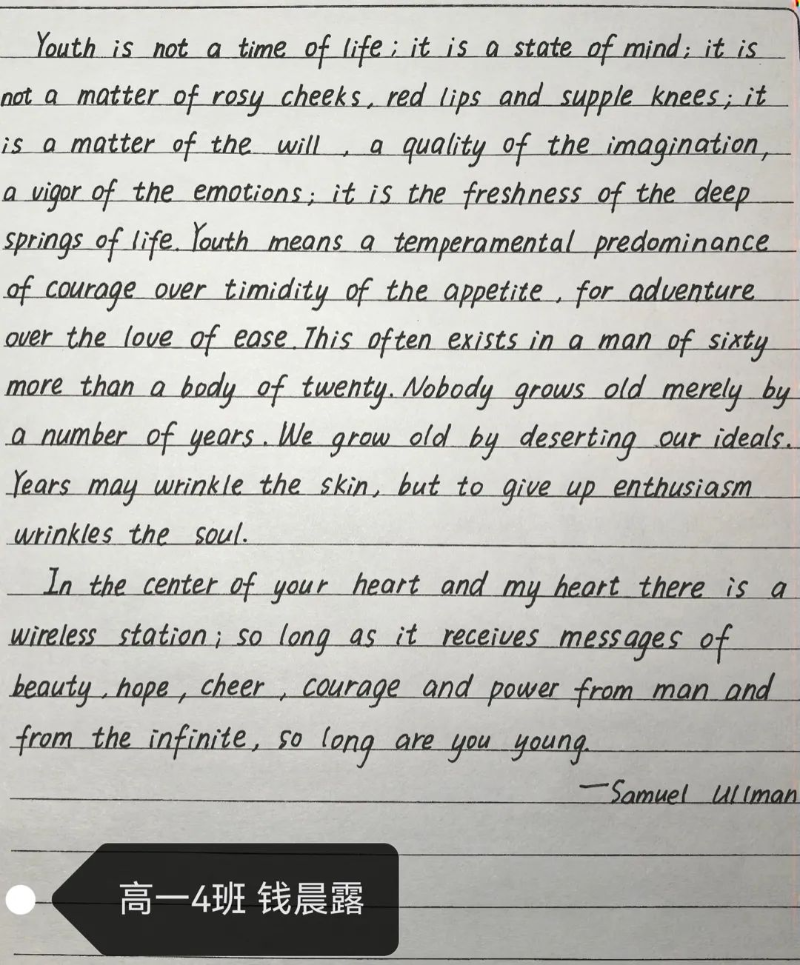 Youth is not a time of life; it is a state of mind; it is
not a matter of rosy cheeks, red lips and supple knees; it
is a matter of the will , a quality of the imagination,
a vigor of the emotions; it is the freshness of the deep
springs of life. Youth means a temperamental predominance
of courage over timidity of the appetite , for adventure
over the love of ease. This often exists in a man of sixty
more than a body of twenty. Nobody grows old merely by
a number of years. We grow old by deserting our ideals.
Years may wrinkle the skin, but to give up enthusiasm
wrinkles the soul.
In the center of your heart and my heart there is a
wireless station; so long as it receives messages of
beauty, hope, cheer, courage and power from man and
from the infinite, so long are you young.
—Samuel Ullman
高一4班 钱晨露